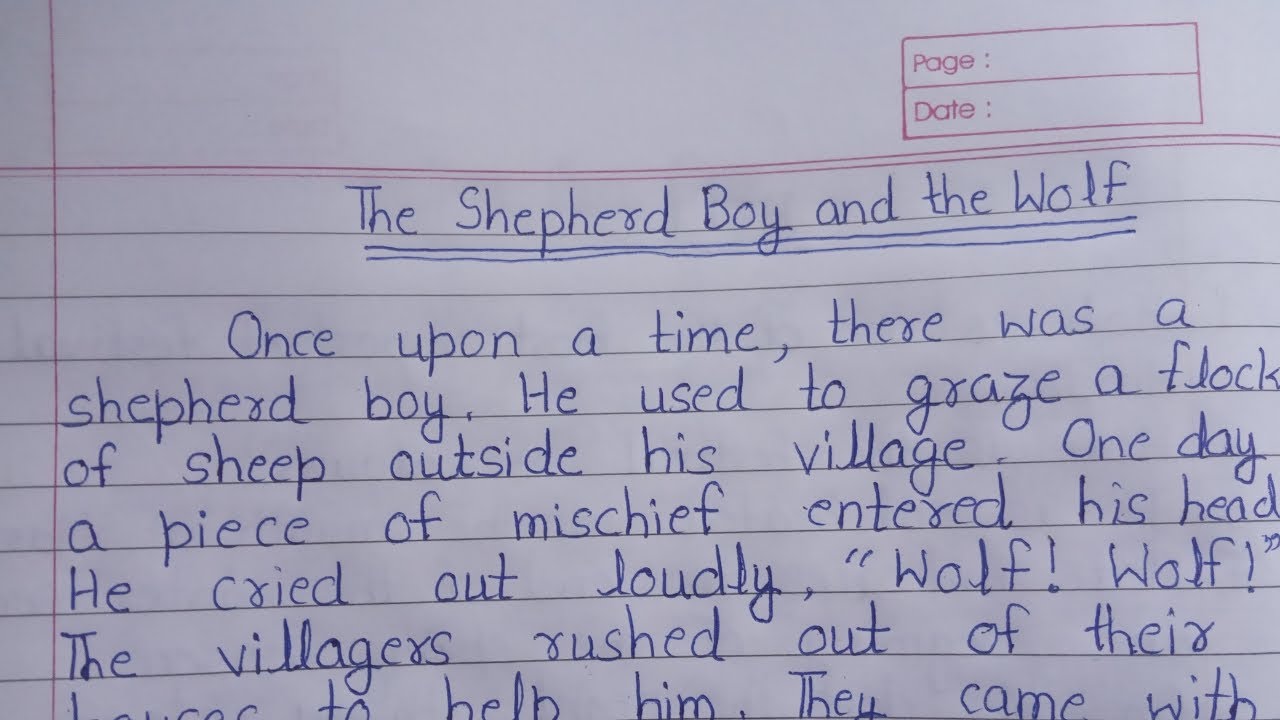 Page :
Date :
The Shepherd Boy and the Wolf
Once upon a time, there was a
shepherd boy. He used to graze a flock
of sheep outside his village. One day
a piece of mischief entered his head
He cried out loudly, "Wolf! Wolf!"
The villagers rushed out of their
houses to help him. They came with